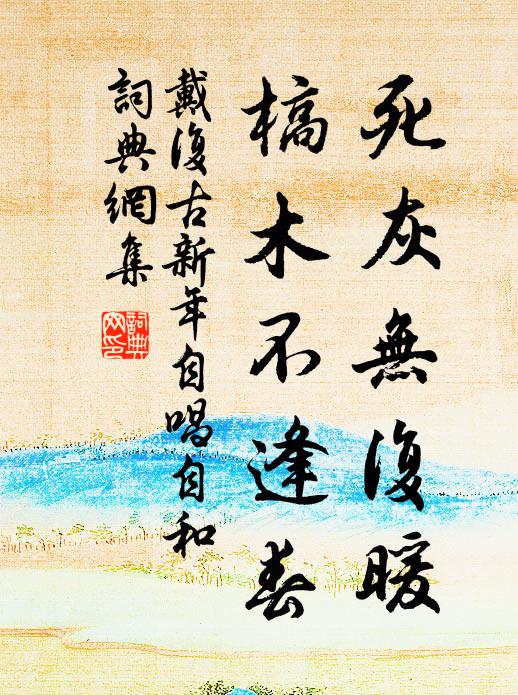 死灰無復暖
槁木不逢春
戴復古新年自唱自和
詞典網集
詞典
网印